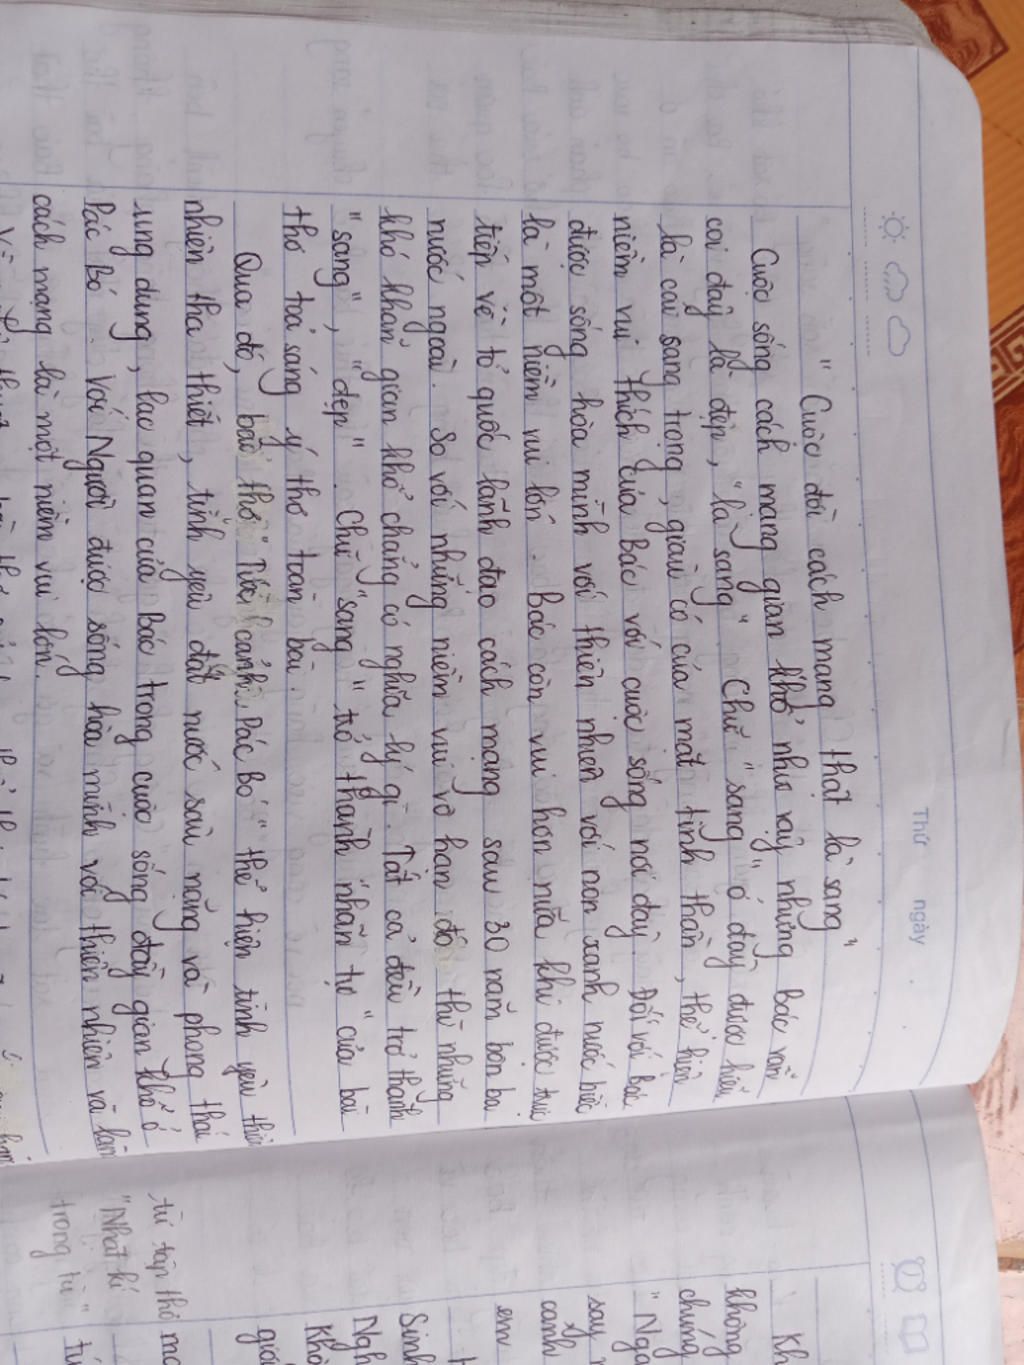 Thứ ngày
" Cuộc đời cách mạng thật là sang "
Cuộc sống cách mạng gian khổ như vậy nhưng Bác vẫn
coi đây là đẹp, " là sang " Chữ " sang " ở đây được hiểu
là cái sang trọng, giàu có của mặt tinh thần, thể hiện
niềm vui thích của Bác với cuộc sống nơi đây. Đối với Bác
được sống hòa mình với thiên nhiên với non xanh nước biếc
là một niềm vui lớn. Bác còn vui hơn nữa khi được trực
tiếp về tổ quốc lãnh đạo cách mạng sau 30 năm bôn ba
nước ngoài. So với những niềm vui vô hạn đó thì những
khó khăn gian khổ chẳng có nghĩa lý gì. Tất cả đều trở thành
" sang ", " đẹp ". Chữ " sang " trở thành " nhãn tự " của bài
thơ toả sáng ý thơ toàn bài.
Qua đó, bài thơ " Tức cảnh Pác Bó " thể hiện tình yêu thiên
nhiên tha thiết, tình yêu đất nước sâu nặng và phong thái
ung dung, lạc quan của Bác trong cuộc sống đầy gian khổ ở
Pác Bó. Với Người được sống hòa mình với thiên nhiên và làm
cách mạng là một niềm vui lớn.
không
chúng
" Nga
say
canh
em
Sinh
Ngh
Khô
giớ
từ tập thơ
" Nhật kí
trong tù "